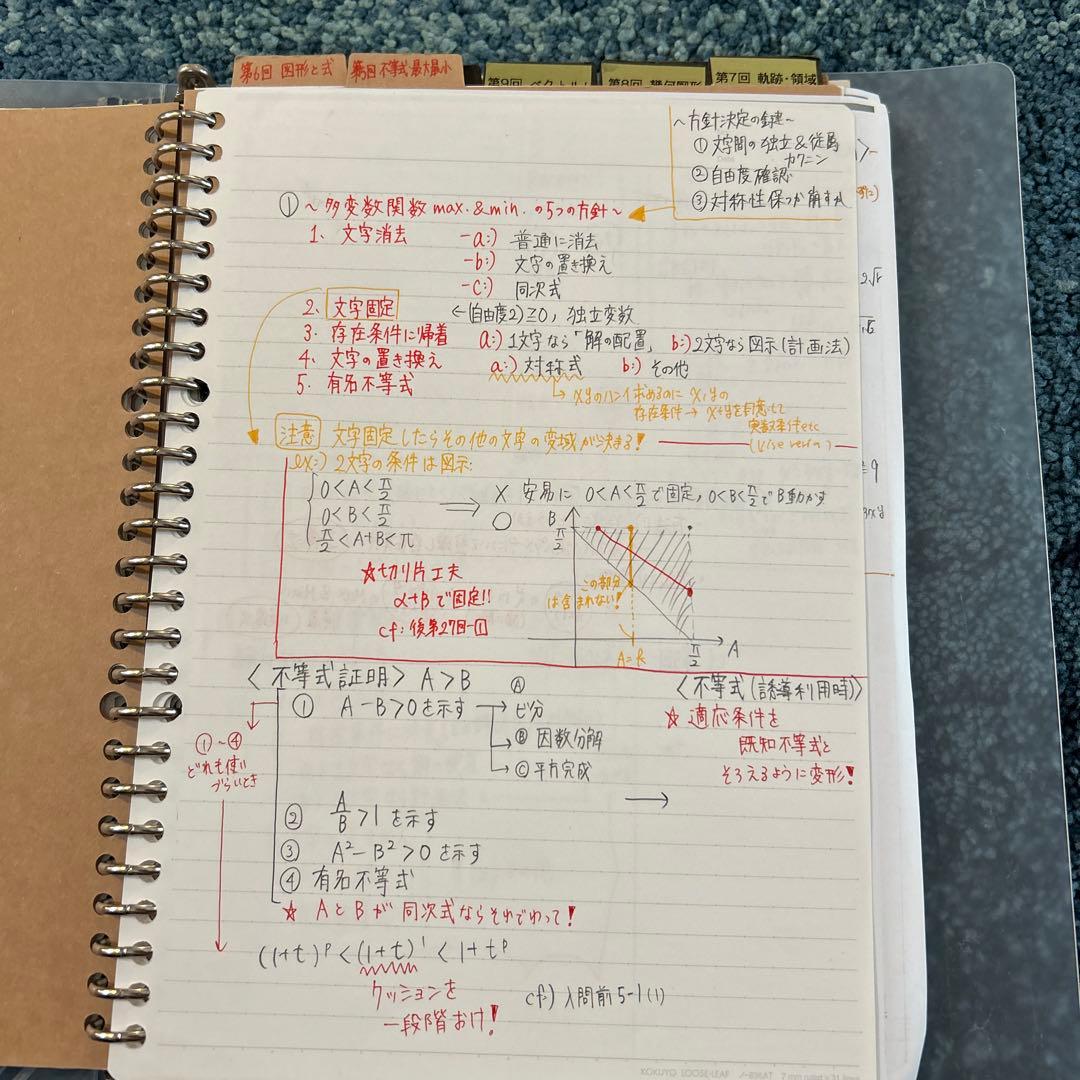 第6回 図形と式
第5回 不等式・最大最小
第9回 ベクトル
第8回 幾何図形
第7回 軌跡・領域
~方針決定の鍵~
① 文字間の独立&従属
カクニン
② 自由度確認
③ 対称性保つか崩すか
① ~多変数関数 max.&min. の5つの方針~
1. 文字消去 -a:) 普通に消去
-b:) 文字の置き換え
-c:) 同次式
2. 文字固定 ←(自由度2)≧0, 独立変数
3. 存在条件に帰着 a:) 1文字なら「解の配置」 b:) 2文字なら図示(計画法)
4. 文字の置き換え a:) 対称式 b:) その他
5. 有名不等式
→ xyのハンイ求めるのに x,yの
存在条件 → x+yを用意して
実数条件etc
(vise versa)
注意 文字固定したらその他の文字の変域が決まる!
ex:) 2文字の条件は図示:
0<A<π/2
0<B<π/2
π/2<A+B<π
⇒ × 安易に 0<A<π/2で固定, 0<B<π/2でB動かす
○
B
π/2
この部分
は含まれない!
A=k
π/2
A
☆切り片工夫
α+βで固定!!
cf: 後第27回-①
〈不等式証明〉 A>B
① A-B>0を示す → Ⓐ ビ分
→ Ⓑ 因数分解
→ Ⓒ 平方完成
② A/B>1 を示す
③ A²-B²>0 を示す
④ 有名不等式
☆ AとBが同次式ならそれでわって!
①~④
どれも使い
づらいとき
(1+t)ᵖ<(1+t)¹<1+tᵖ
クッションを
一段階おけ!
cf) 入間前5-1(1)
〈不等式(誘導利用時)〉
☆ 適応条件を
既知不等式と
そろえるように変形!
→
KOKUYO LOOSE-LEAF ノ-836AT 7 mm ruled × 31 lines